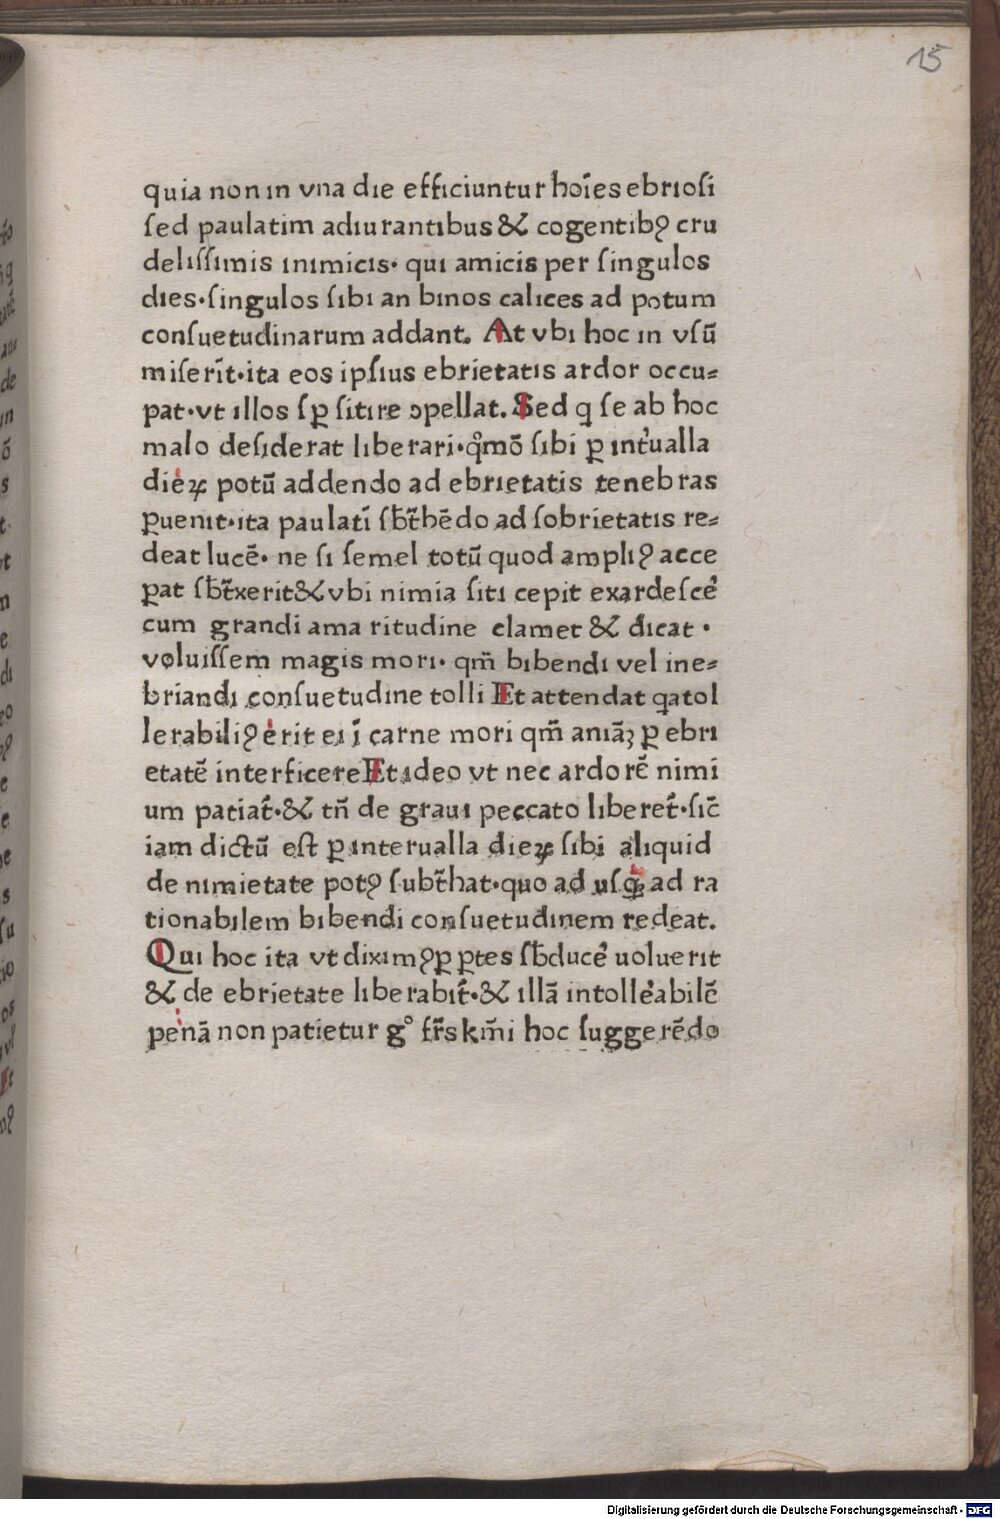 15
quia non in vna die efficiuntur hoı̄es ebrioſi
ſed paulatim adiurantibus & cogentibꝯ cru
deliſſimis inimicis· qui amicis per ſingulos
dies·ſingulos ſibi an binos calices ad potum
conſuetudinarum addant. At vbi hoc in vſū
miſerīt·ita eos ipſius ebrietatis ardor occu⸗
pat·vt illos ſꝑ ſitire ꝯpellat. Sed q ſe ab hoc
malo deſiderat liberari·qͦmō ſibi ꝑ int̓ualla
dieꝝ potū addendo ad ebrietatis tenebras
ꝑuenit·ita paulatī ſbt̄hēdo ad ſobrietatis re⸗
deat lucē· ne ſi ſemel totū quod ampliꝯ acce
ꝑat ſbt̄xerit&vbi nimia ſiti cepit exardeſcē
cum grandi ama ritudine clamet & dicat ·
voluiſſem magis mori· qm̄ bibendi vel ine⸗
briandi conſuetudine tolli Et attendat qꝛ tol
lerabiliꝯ erit ei ī carne mori qm̄ aniāꝫ ꝑ ebri
etatē interficere Et ideo vt nec ardorē nimi
um patiat̄·& tn̄ de graui peccato liberet̄·ſic̄
iam dictū eſt ꝑ interualla dieꝝ ſibi aliquid
de nimietate potꝯ ſubt̄hat·quo ad uſqꝫ ad ra
tionabilem bibendi conſuetudinem redeat.
Qui hoc ita vt diximꝯ ꝑ ꝑtes ſbducē uoluerit
& de ebrietate liberabit̄·& illā intollēabilē
penā non patietur gͦ fr̄s km̄i hoc ſuggerēdo
Digitalisierung gefördert durch die Deutsche Forschungsgemeinschaft - DFG